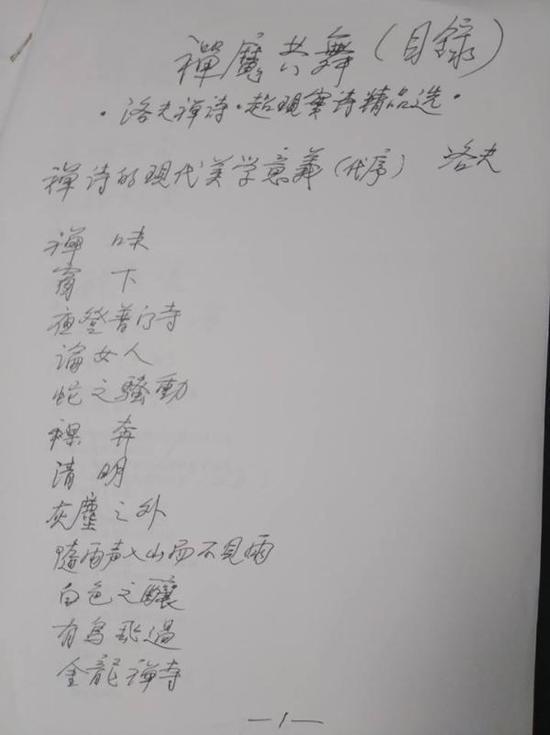 禪魔共舞（目錄）
·洛夫禅诗·超现实诗精品选·
禅诗的现代美学意義（代序） 洛夫
禅 味
窗 下
夜登普门寺
论女人
蛇之騷動
裸 奔
清 明
灰塵之外
随雨声入山而不見雨
白色之釀
有鸟飛過
金龍禅寺
—1—